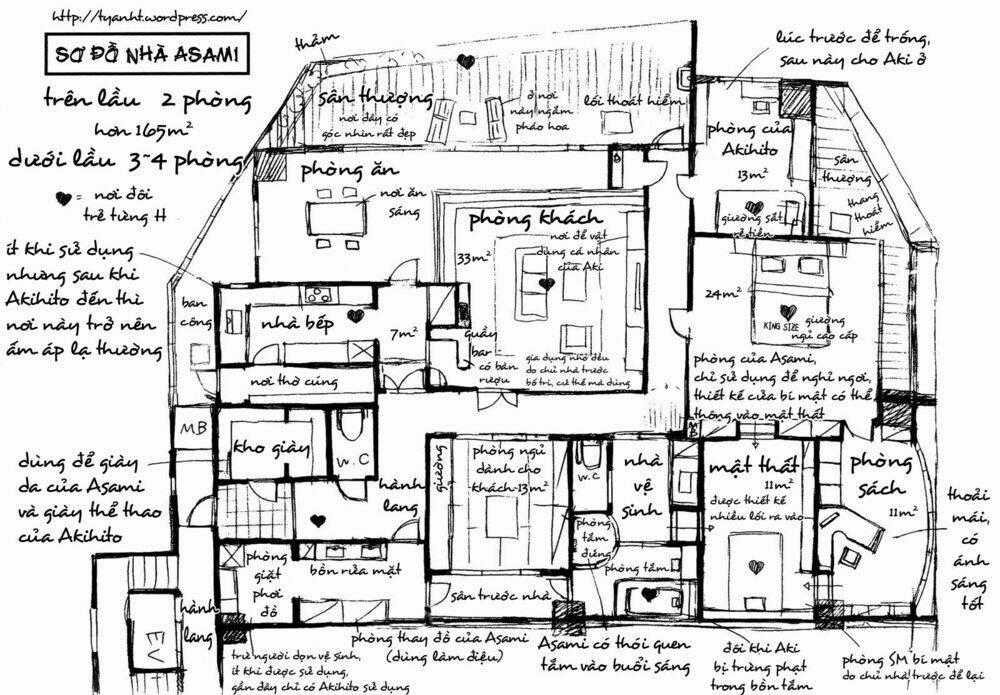 http://tyanht.wordpress.com/
SƠ ĐỒ NHÀ ASAMI
trên lầu 2 phòng
hơn 165m²
dưới lầu 3~4 phòng
= nơi đôi
trẻ từng H
ít khi sử dụng
nhưng sau khi
Akihito đến thì
nơi này trở nên
ấm áp lạ thường
dùng để giày
da của Asami
và giày thể thao
của Akihito
thảm
sân thượng
nơi đây có
góc nhìn rất đẹp
ở nơi
này ngắm
pháo hoa
lối thoát hiểm
lúc trước để trống,
sau này cho Aki ở
phòng của
Akihito
13m²
giường sắt
rẻ tiền
sân
thượng
thang
thoát
hiểm
phòng ăn
nơi ăn
sáng
phòng khách
33m²
nơi để vật
dụng cá nhân
của Aki
gia dụng nhỏ đều
do chủ nhà trước
bố trí, cứ thế mà dùng
ban
công
nhà bếp
7m²
quầy
bar
có bán
rượu
nơi thờ cúng
24m²
KING SIZE
giường
ngủ cao cấp
phòng của Asami,
chỉ sử dụng để nghỉ ngơi,
thiết kế cửa bí mật có thể
thông vào mật thất
MB
kho giày
W.C
hành
lang
giường
phòng ngủ
dành cho
khách 13m²
W.C
nhà
vệ
sinh
phòng
tắm
đứng
phòng tắm
MB
mật thất
11m²
được thiết kế
nhiều lối ra vào
phòng
sách
11m²
thoải
mái,
có
ánh
sáng
tốt
phòng
giặt
phơi
đồ
bồn rửa mặt
sân trước nhà
hành
lang
EV
phòng thay đồ của Asami
(dùng làm điệu)
trừ người dọn vệ sinh,
ít khi được sử dụng,
gần đây chỉ có Akihito sử dụng
Asami có thói quen
tắm vào buổi sáng
đôi khi Aki
bị trừng phạt
trong bồn tắm
phòng SM bí mật
do chủ nhà trước để lại